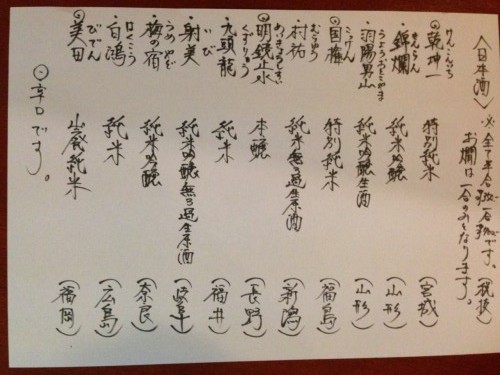 〈日本酒〉 ※全て半合 一合 です。(税抜)
お燗は一合のみとなります。
けんこんいち
◎乾坤一 特別純米 (宮城)
きんらん
・錦爛 純米吟醸 (山形)
うようおとこやま
・羽陽男山 純米吟醸生酒 (山形)
こっけん
◎国権 特別純米 (福島)
むらゆう
・村祐 純米無ろ過生原酒 (新潟)
めいきょうしすい
◎明鏡止水 本醸 (長野)
くずりゅう
・九頭龍 純米 (福井)
いび
・射美 純米吟醸無ろ過生原酒 (岐阜)
うめのやど
・梅の宿 純米吟醸 (奈良)
はくこう
・白鴻 純米 (広島)
びでん
◎美田 山廃純米 (福岡)
◎辛口です。